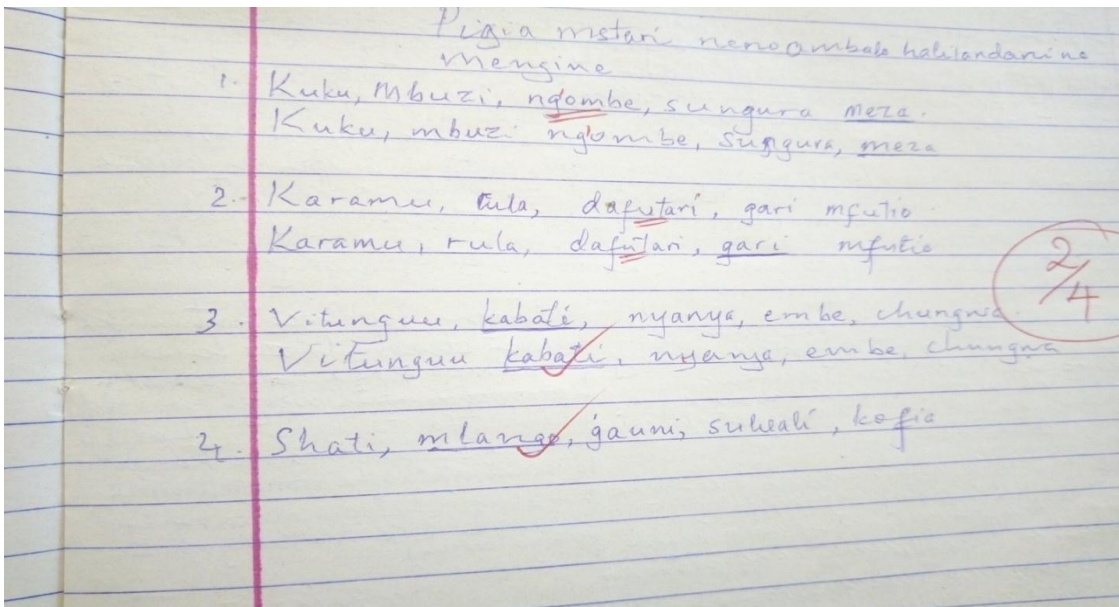 Pigia mstari neno ambalo halilandani na
mengine
1. Kuku, Mbuzi, ng'ombe, sungura meza.
Kuku, mbuzi ng'ombe, Sungura, meza
2. Karamu, rula, dafutari, gari mfutio
Karamu, rula, dafutari, gari mfutio
2/4
3. Vitunguu, kabati, nyanya, embe, chungwa
Vitunguu kabati, nyanya, embe, chungwa
4. Shati, mlango, gauni, suruali, kofia